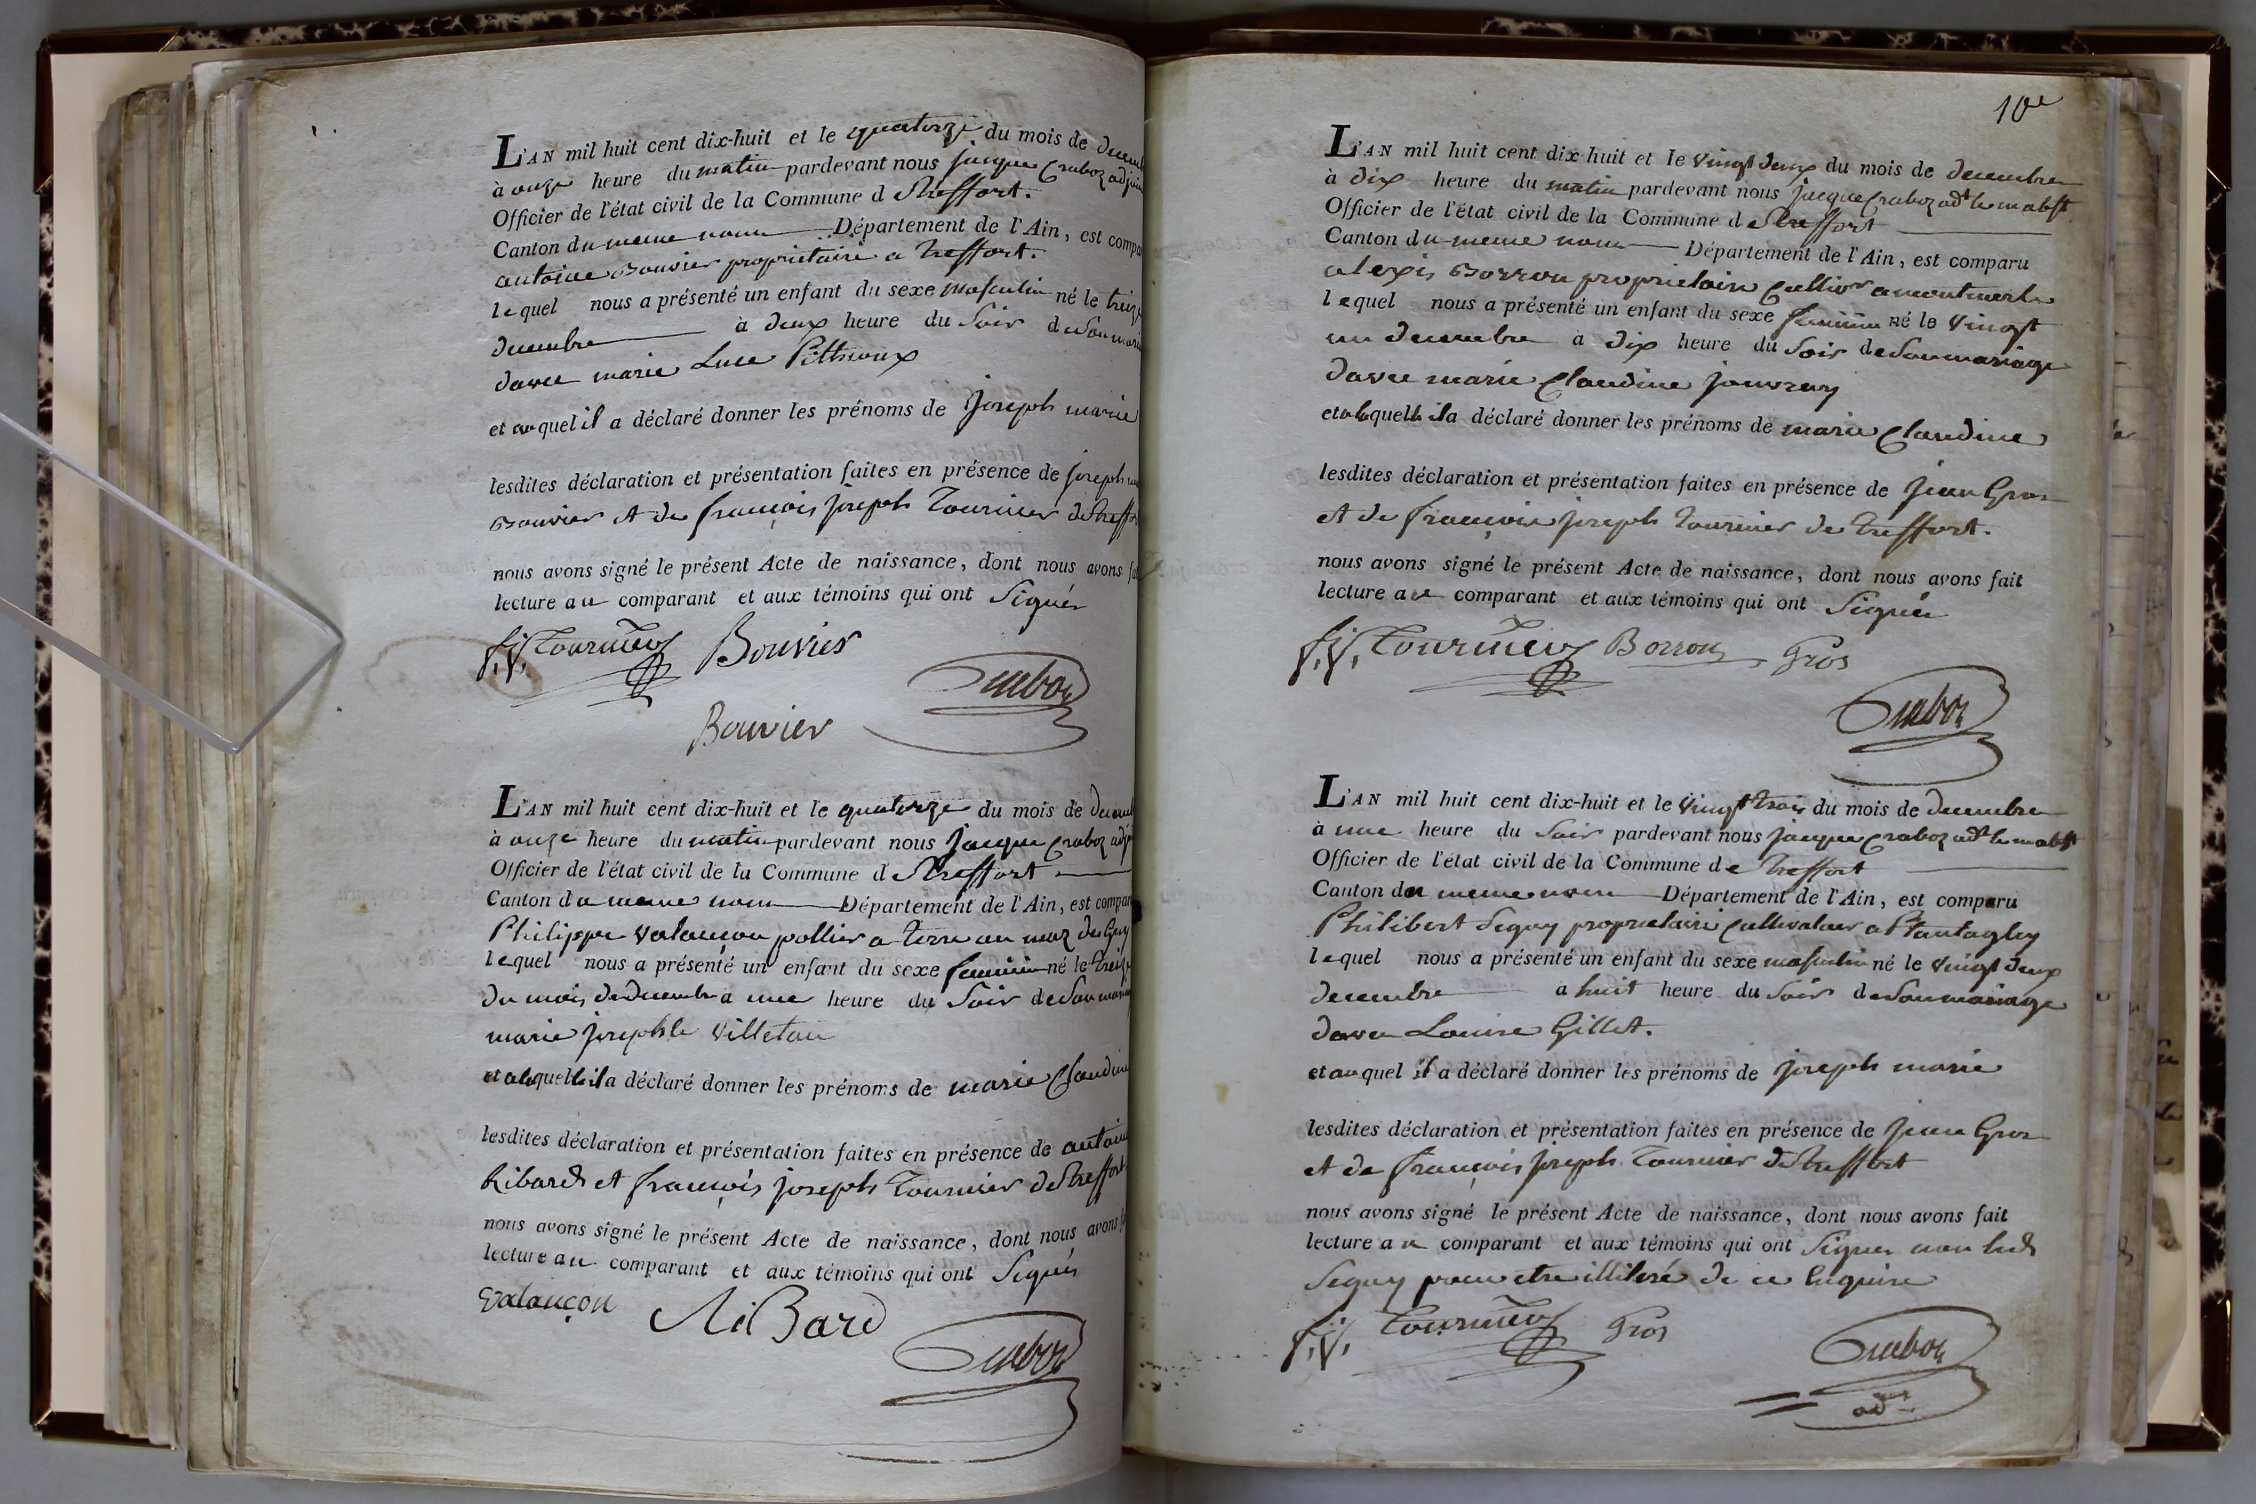 L'AN mil huit cent dix-huit et le quatorze du mois de
à onze heure du matin pardevant nous jacque Craboz
Officier de l'état civil de la Commune d Treffort.
Canton du meme nom Département de l'Ain, est
antoine Bouvier propriétaire a treffort.
lequel nous a présenté un enfant du sexe masculin né le treize
decembre à deux heure du soir de son
davec marie Luce
et auquel il a déclaré donner les prénoms de joseph marie
lesdites déclaration et présentation faites en présence de joseph
Bouvier et de françois joseph Tournier de
nous avons signé le présent Acte de naissance, dont nous avons
lecture au comparant et aux témoins qui ont Signés
f. j. Tournier Bouvier
Craboz
Bouvier
L'AN mil huit cent dix-huit et le quatorze du mois de
à onze heure du matin pardevant nous jacque Craboz
Officier de l'état civil de la Commune d Treffort
Canton du meme nom Département de l'Ain, est
Philippe Valançon pottier a terre au
lequel nous a présenté un enfant du sexe feminin né le treize
du mois de decembre a une heure du Soir de son
marie josephte
et alaquelle il a déclaré donner les prénoms de marie Claudine
lesdites déclaration et présentation faites en présence de
Ribard et françois joseph Tournier de Treffort
nous avons signé le présent Acte de naissance, dont nous avons
lecture au comparant et aux témoins qui ont Signés
Valançon RiBard
Craboz
10e
L'AN mil huit cent dix-huit et le vingt deux du mois de decembre
à dix heure du matin pardevant nous jacque Craboz
Officier de l'état civil de la Commune de Treffort
Canton du meme nom Département de l'Ain, est comparu
alexis Borron proprietaire
lequel nous a présenté un enfant du sexe feminin né le vingt
un decembre à dix heure du soir de son mariage
davec marie Claudine
et alaquelle il a déclaré donner les prénoms de marie Claudine
lesdites déclaration et présentation faites en présence de jean Gros
et de françois joseph Tournier de treffort.
nous avons signé le présent Acte de naissance, dont nous avons fait
lecture au comparant et aux témoins qui ont Signés
f. j. Tournier Borron Gros
Craboz
L'AN mil huit cent dix-huit et le vingt trois du mois de decembre
à une heure du soir pardevant nous jacque Craboz
Officier de l'état civil de la Commune de Treffort
Canton du meme nom Département de l'Ain, est comparu
Philibert Seguy proprietaire cultivateur a
lequel nous a présenté un enfant du sexe masculin né le vingt deux
decembre a huit heure du soir de son mariage
davec Louise Gillet.
et auquel il a déclaré donner les prénoms de joseph marie
lesdites déclaration et présentation faites en présence de jean Gros
et de françois joseph Tournier de treffort
nous avons signé le présent Acte de naissance, dont nous avons fait
lecture au comparant et aux témoins qui ont Signés non
Seguy pour etre illiteré de ce Enquire
f. j. Tournier Gros
Craboz
adt